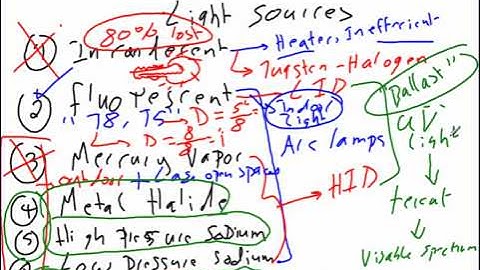 Light Sources
80% lost
① Incandescent
Heaters, Inefficient
Tungsten-Halogen
② Fluorescent
Indoor Light
"Ballast"
"T8, T5" D = 5/8"
D = 8/8 = 1
Arc lamps
UV Light
③ Mercury Vapor
outdoor + large open spaces
HID
④ Metal Halide
⑤ High Pressure Sodium
Low Pressure Sodium
Visable Spectrum